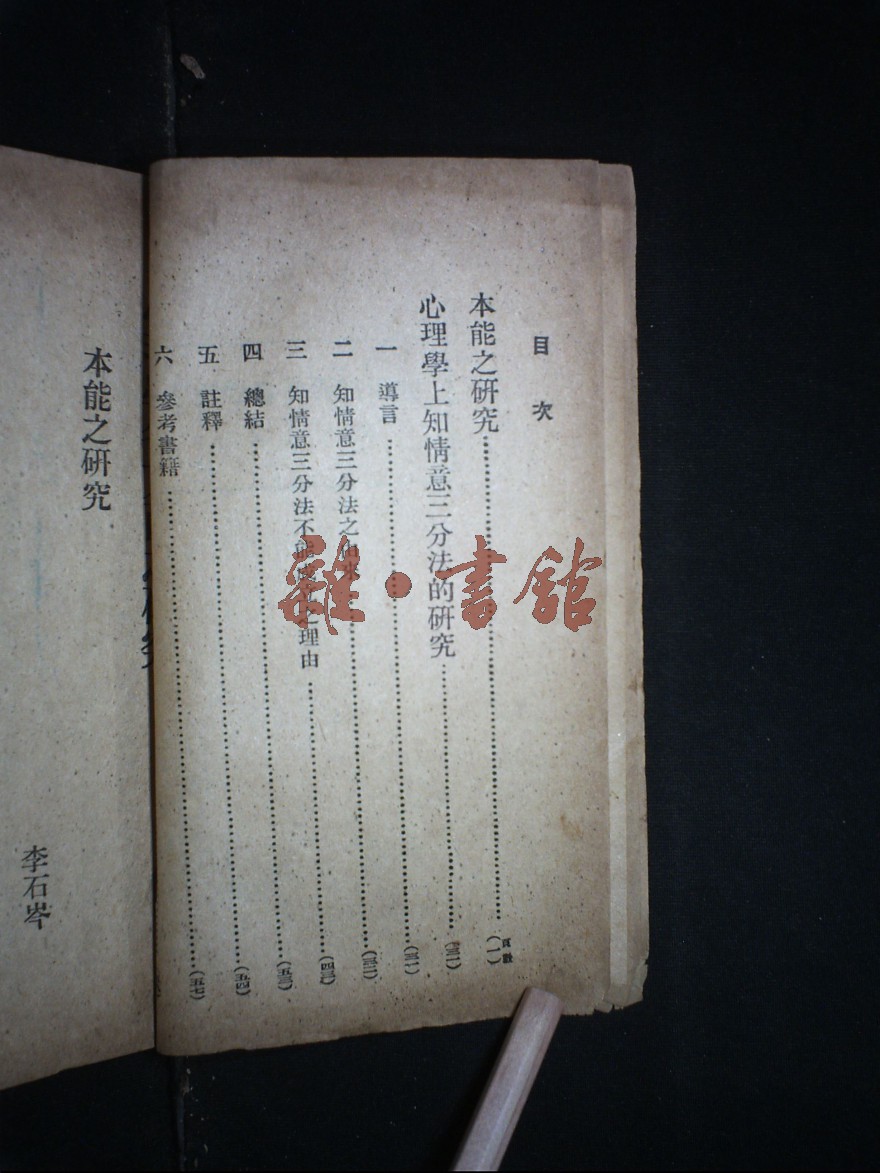 目次
頁數
本能之研究……(一)
心理學上知情意三分法的研究……(三一)
一 導言……(三一)
二 知情意三分法之由來……(三二)
三 知情意三分法不能成立之理由……(四三)
四 總結……(五三)
五 註釋……(五四)
六 參考書籍……(五七)
本能之研究
李石岑
雜·書館